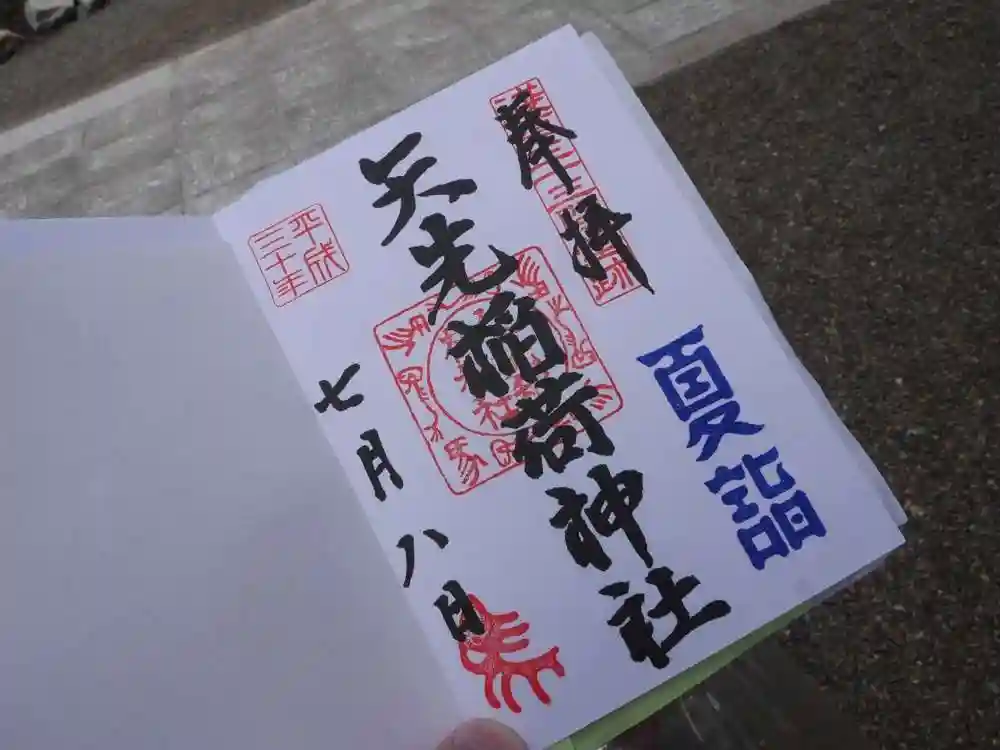 夏詣
奉拝
矢先稲荷神社
平成
三十年
七月八日